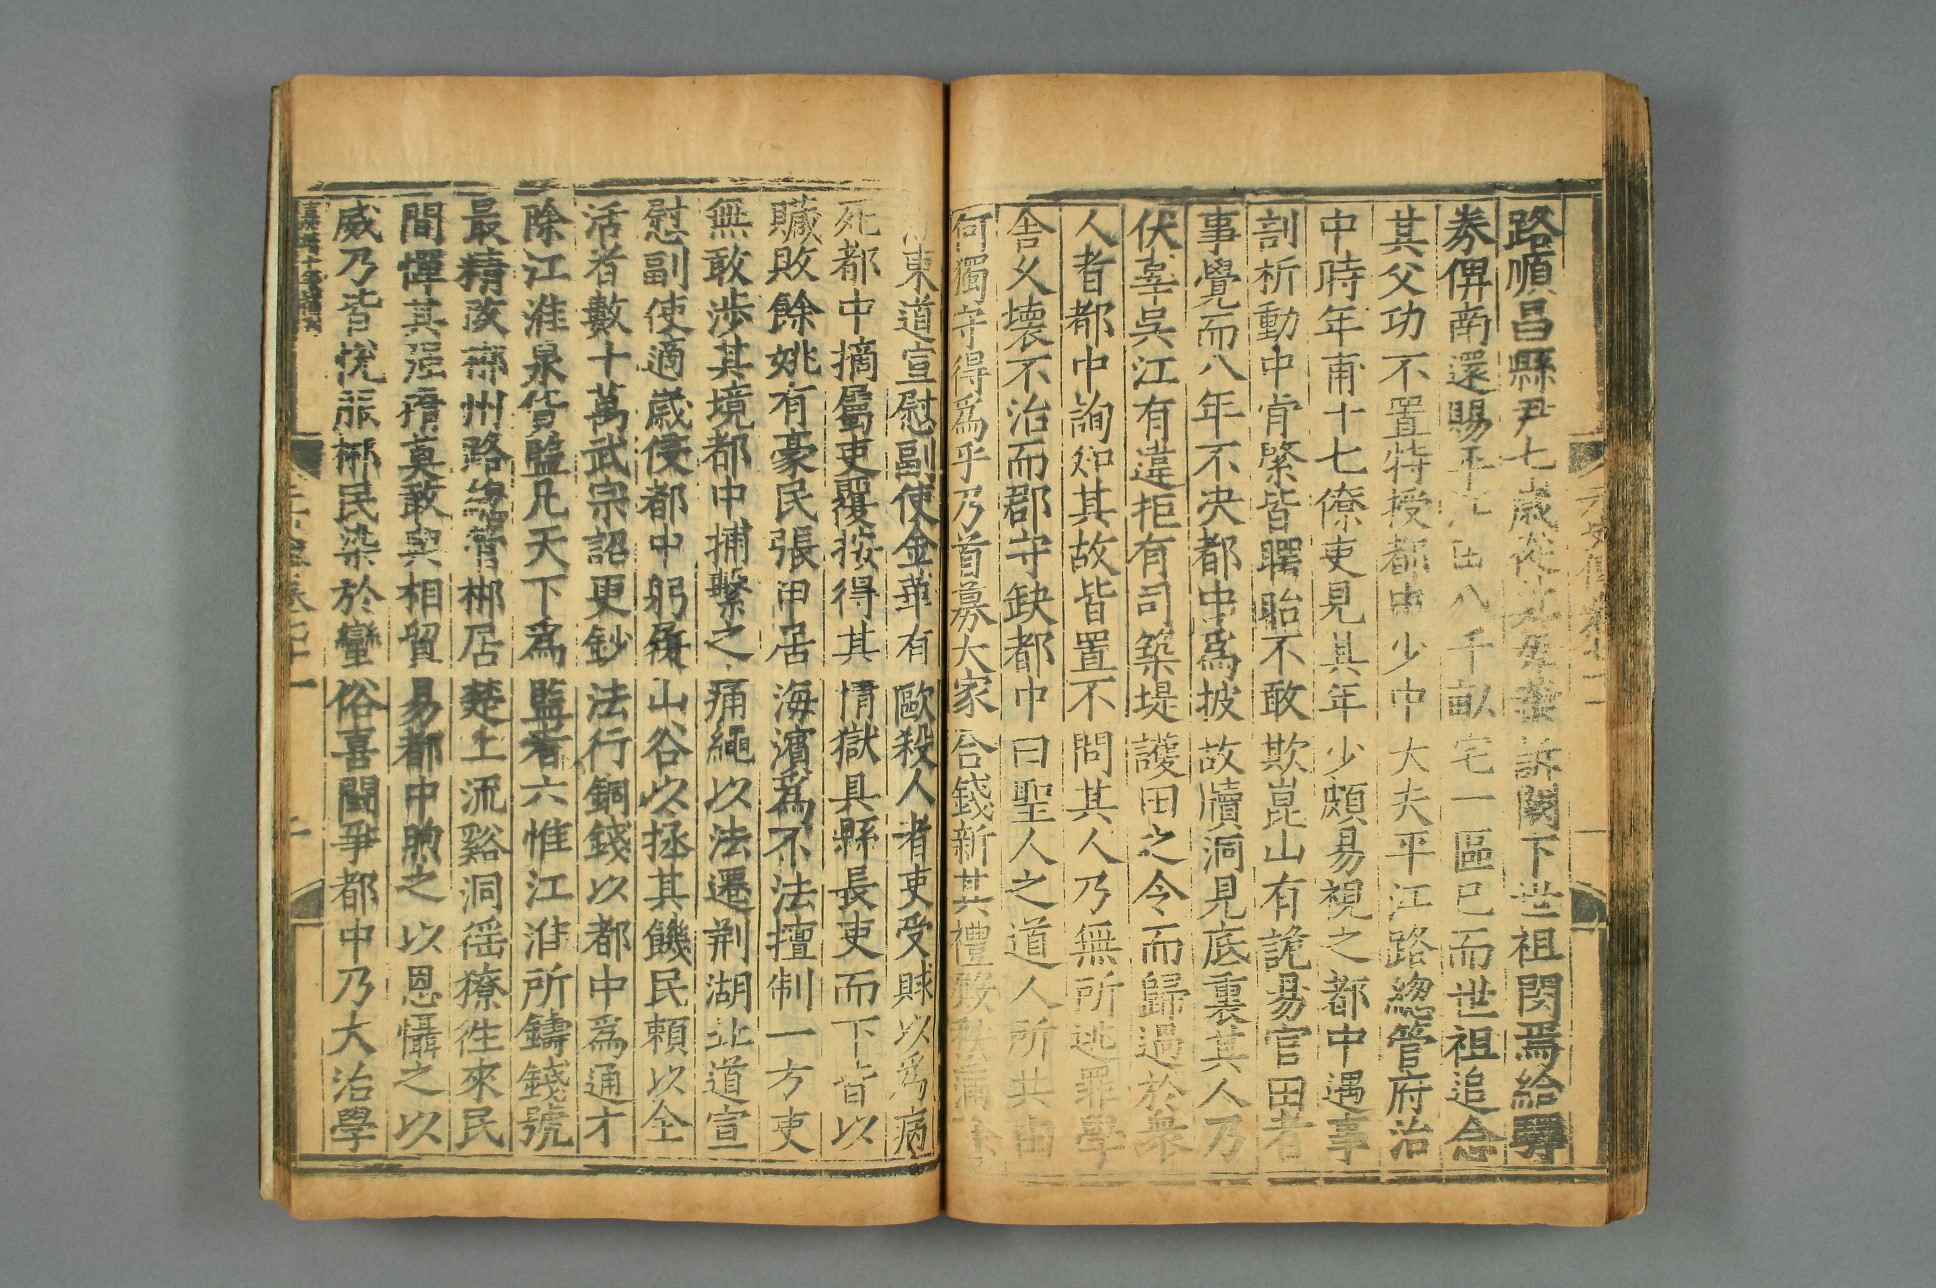 路順昌縣尹七歲從其母葉訴闕下世祖閔焉給驛
券俾南還賜平江田八千畝宅一區已而世祖追念
其父功不置特授都中少中大夫平江路總管府治
中時年甫十七僚吏見其年少頗易視之都中遇事
剖析動中肯綮皆瞪眙不敢欺崑山有詭易官田者
事覺而八年不決都中為披故牘洞見底裏其人乃
伏辜吳江有違拒有司築堤護田之令而歸過於衆
人者都中詢知其故皆置不問其人乃無所逃罪學
舍久壞不治而郡守缺都中曰聖人之道人所共由
何獨守得為乎乃首募大家合錢新其禮殿秩滿除
東道宣慰副使金華有歐殺人者吏受賕以為病
死都中摘屬吏覆按得其情獄具縣長吏而下皆以
贓敗餘姚有豪民張甲居海濱為不法擅制一方吏
無敢涉其境都中捕繫之痛繩以法遷荊湖北道宣
慰副使適歲侵都中躬履山谷以拯其饑民賴以全
活者數十萬武宗詔更鈔法行銅錢以都中為通才
除江淮泉貨監凡天下為監者六惟江淮所鑄錢號
最精改郴州路總管郴居楚上流谿洞徭獠往來民
間憚其强猾莫敢與相貿易都中煦之以恩懾之以
威乃皆悅服郴民染於蠻俗喜鬬爭都中乃大治學